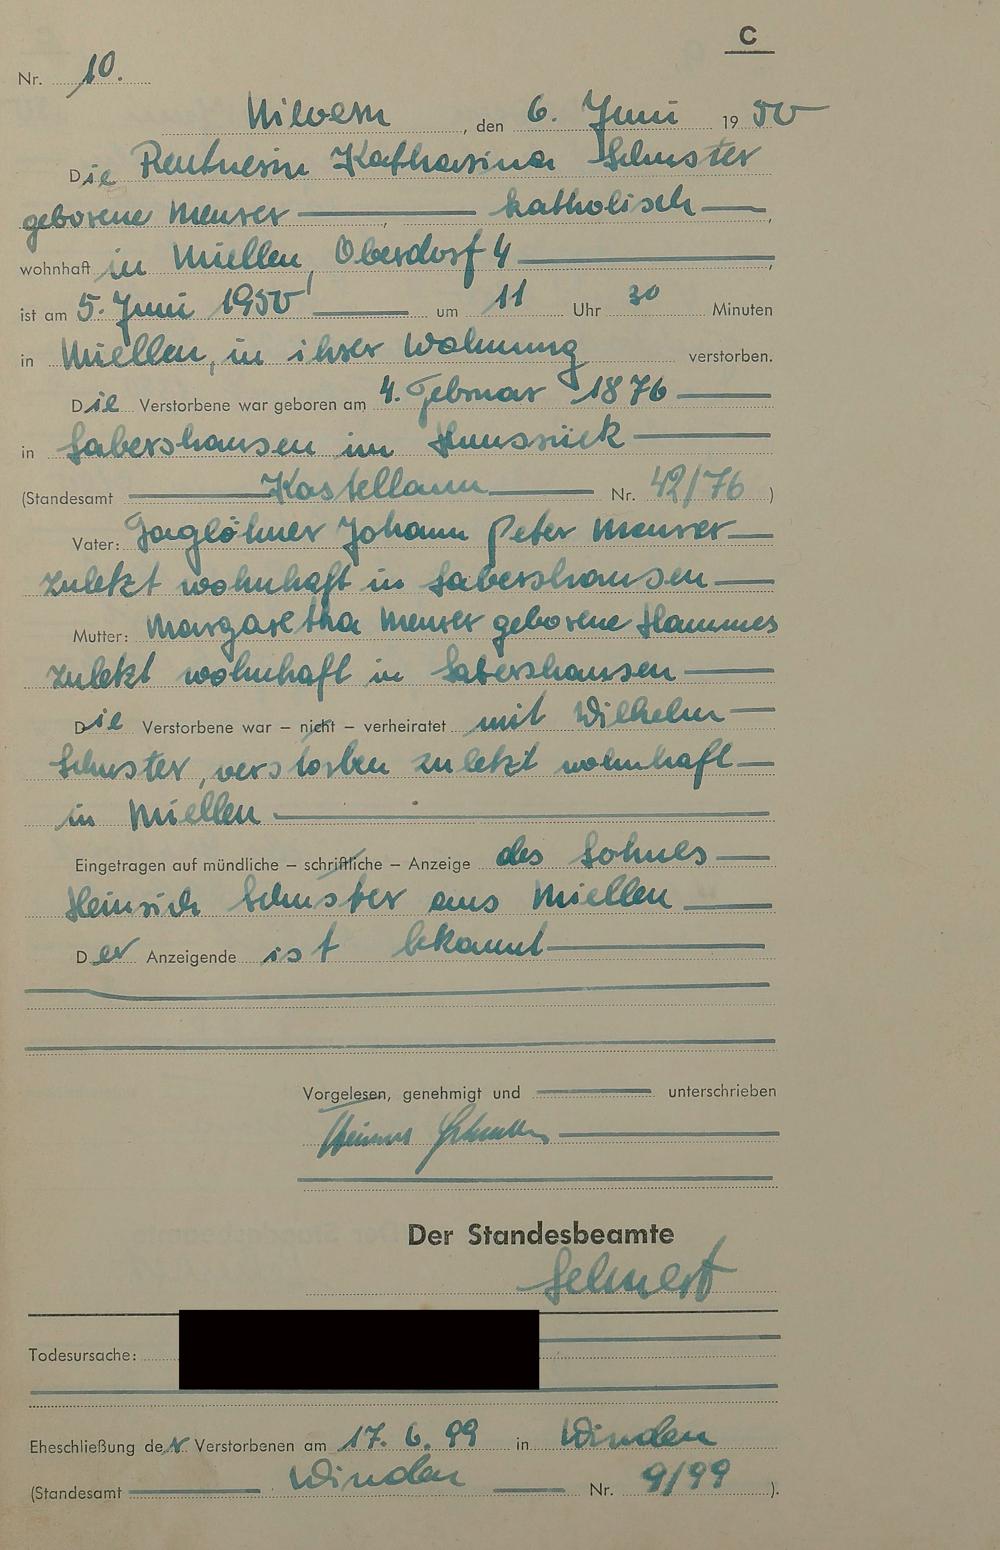 C
Nr. 10.
Nievern, den 6. Juni 1950
Die Rentnerin Katharina Schuster
geborene Meurer, katholisch,
wohnhaft in Miellen, Oberdorf 4,
ist am 5. Juni 1950 um 11 Uhr 30 Minuten
in Miellen, in ihrer Wohnung verstorben.
Die Verstorbene war geboren am 4. Februar 1876
in Sabershausen im Hunsrück
(Standesamt Kastellaun Nr. 42/76)
Vater: Tagelöhner Johann Peter Meurer
zuletzt wohnhaft in Sabershausen
Mutter: Margaretha Meurer geborene Hammes
zuletzt wohnhaft in Sabershausen
Die Verstorbene war – nicht – verheiratet mit Wilhelm
Schuster, verstorben zuletzt wohnhaft
in Miellen
Eingetragen auf mündliche – schriftliche – Anzeige des Sohnes
Heinrich Schuster aus Miellen
Der Anzeigende ist bekannt
Vorgelesen, genehmigt und unterschrieben
Der Standesbeamte
Todesursache:
Eheschließung der Verstorbenen am 17. 6. 99 in Winden
(Standesamt Winden Nr. 9/99).